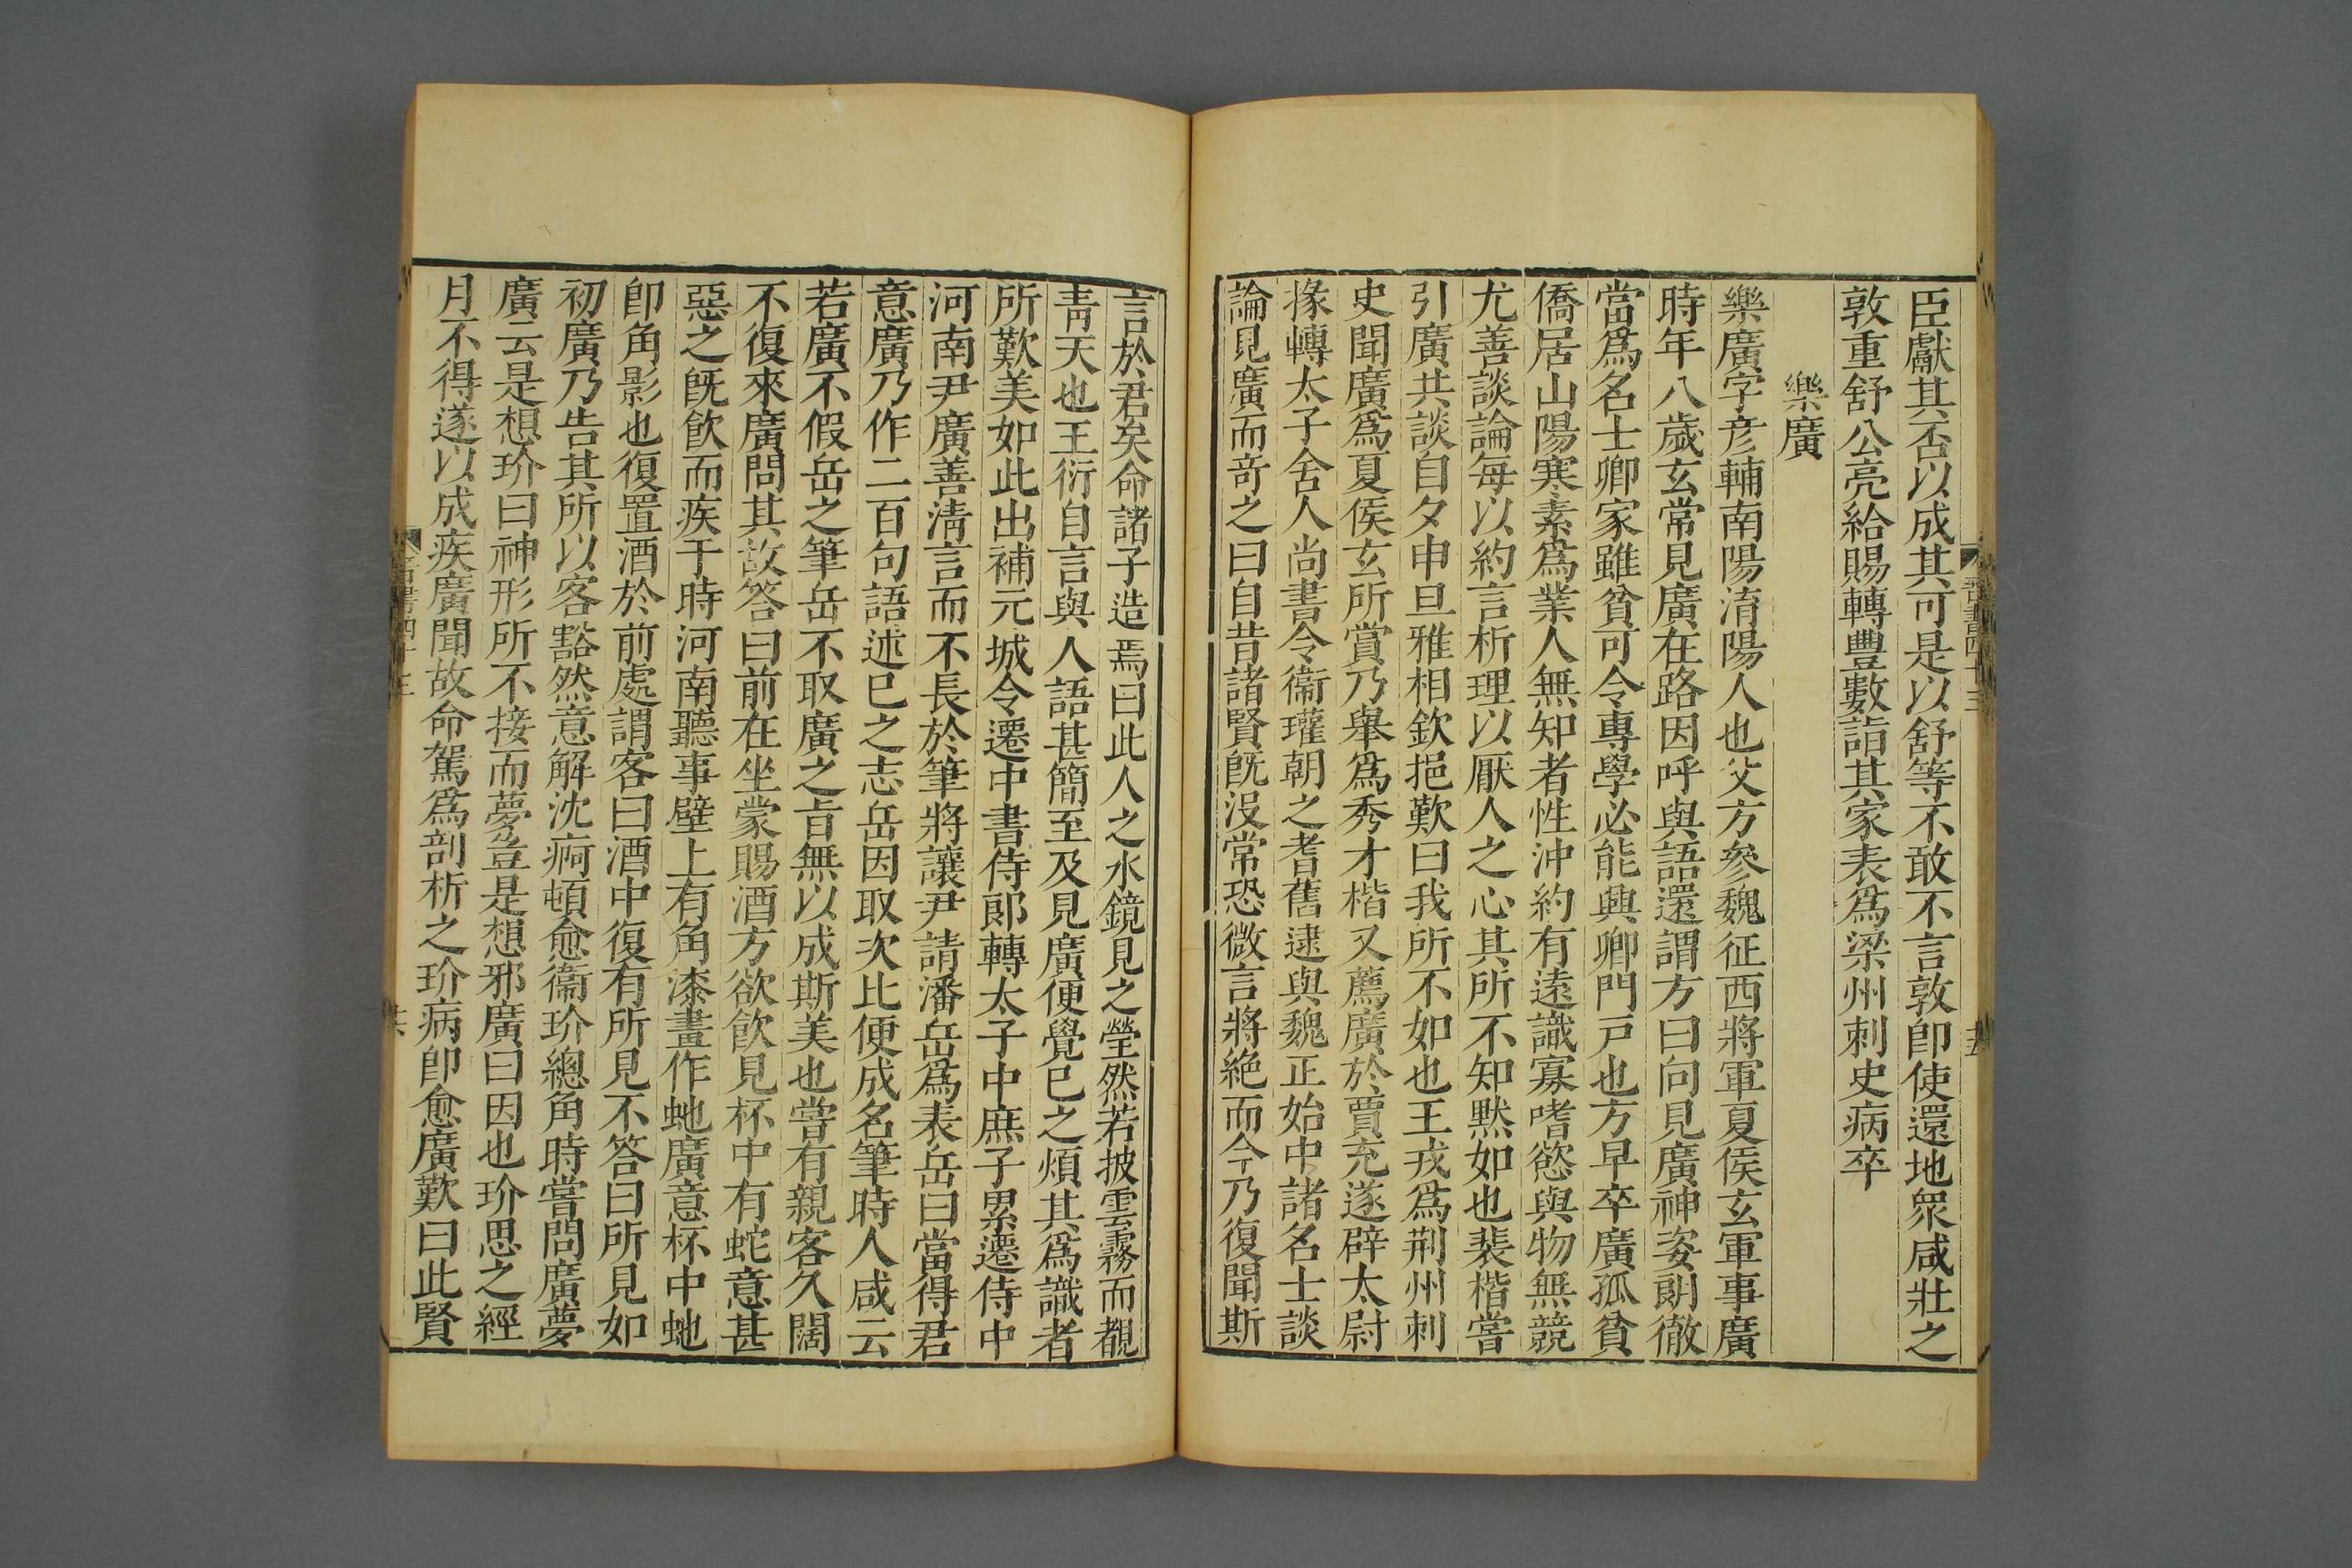 臣獻其否以成其可是以舒等不敢不言敦卽使還地衆咸壯之
敦重舒公亮給賜轉豐數詣其家表爲梁州刺史病卒
樂廣
樂廣字彦輔南陽淯陽人也父方參魏征西將軍夏侯玄軍事廣
時年八歲玄常見廣在路因呼與語還謂方曰向見廣神姿朗徹
當爲名士卿家雖貧可令專學必能興卿門戸也方早卒廣孤貧
僑居山陽寒素爲業人無知者性沖約有遠識寡嗜慾與物無競
尤善談論每以約言析理以厭人之心其所不知默如也裴楷嘗
引廣共談自夕申旦雅相欽挹歎曰我所不如也王戎爲荆州刺
史聞廣爲夏侯玄所賞乃舉爲秀才楷又薦廣於賈充遂辟太尉
掾轉太子舍人尚書令衞瓘朝之耆舊逮與魏正始中諸名士談
論見廣而奇之曰自昔諸賢旣没常恐微言將絶而今乃復聞斯
言於君矣命諸子造焉曰此人之水鏡見之瑩然若披雲霧而覩
靑天也王衍自言與人語甚簡至及見廣便覺已之煩其爲識者
所歎美如此出補元城令遷中書侍郎轉太子中庶子累遷侍中
河南尹廣善淸言而不長於筆將讓尹請潘岳爲表岳曰當得君
意廣乃作二百句語述已之志岳因取次比便成名筆時人咸云
若廣不假岳之筆岳不取廣之旨無以成斯美也嘗有親客久闊
不復來廣問其故答曰前在坐蒙賜酒方欲飮見杯中有蛇意甚
惡之旣飮而疾于時河南聽事壁上有角漆畫作虵廣意杯中虵
卽角影也復置酒於前處謂客曰酒中復有所見不答曰所見如
初廣乃告其所以客豁然意解沈痾頓愈衞玠總角時嘗問廣夢
廣云是想玠曰神形所不接而夢豈是想邪廣曰因也玠思之經
月不得遂以成疾廣聞故命駕爲剖析之玠病卽愈廣歎曰此賢